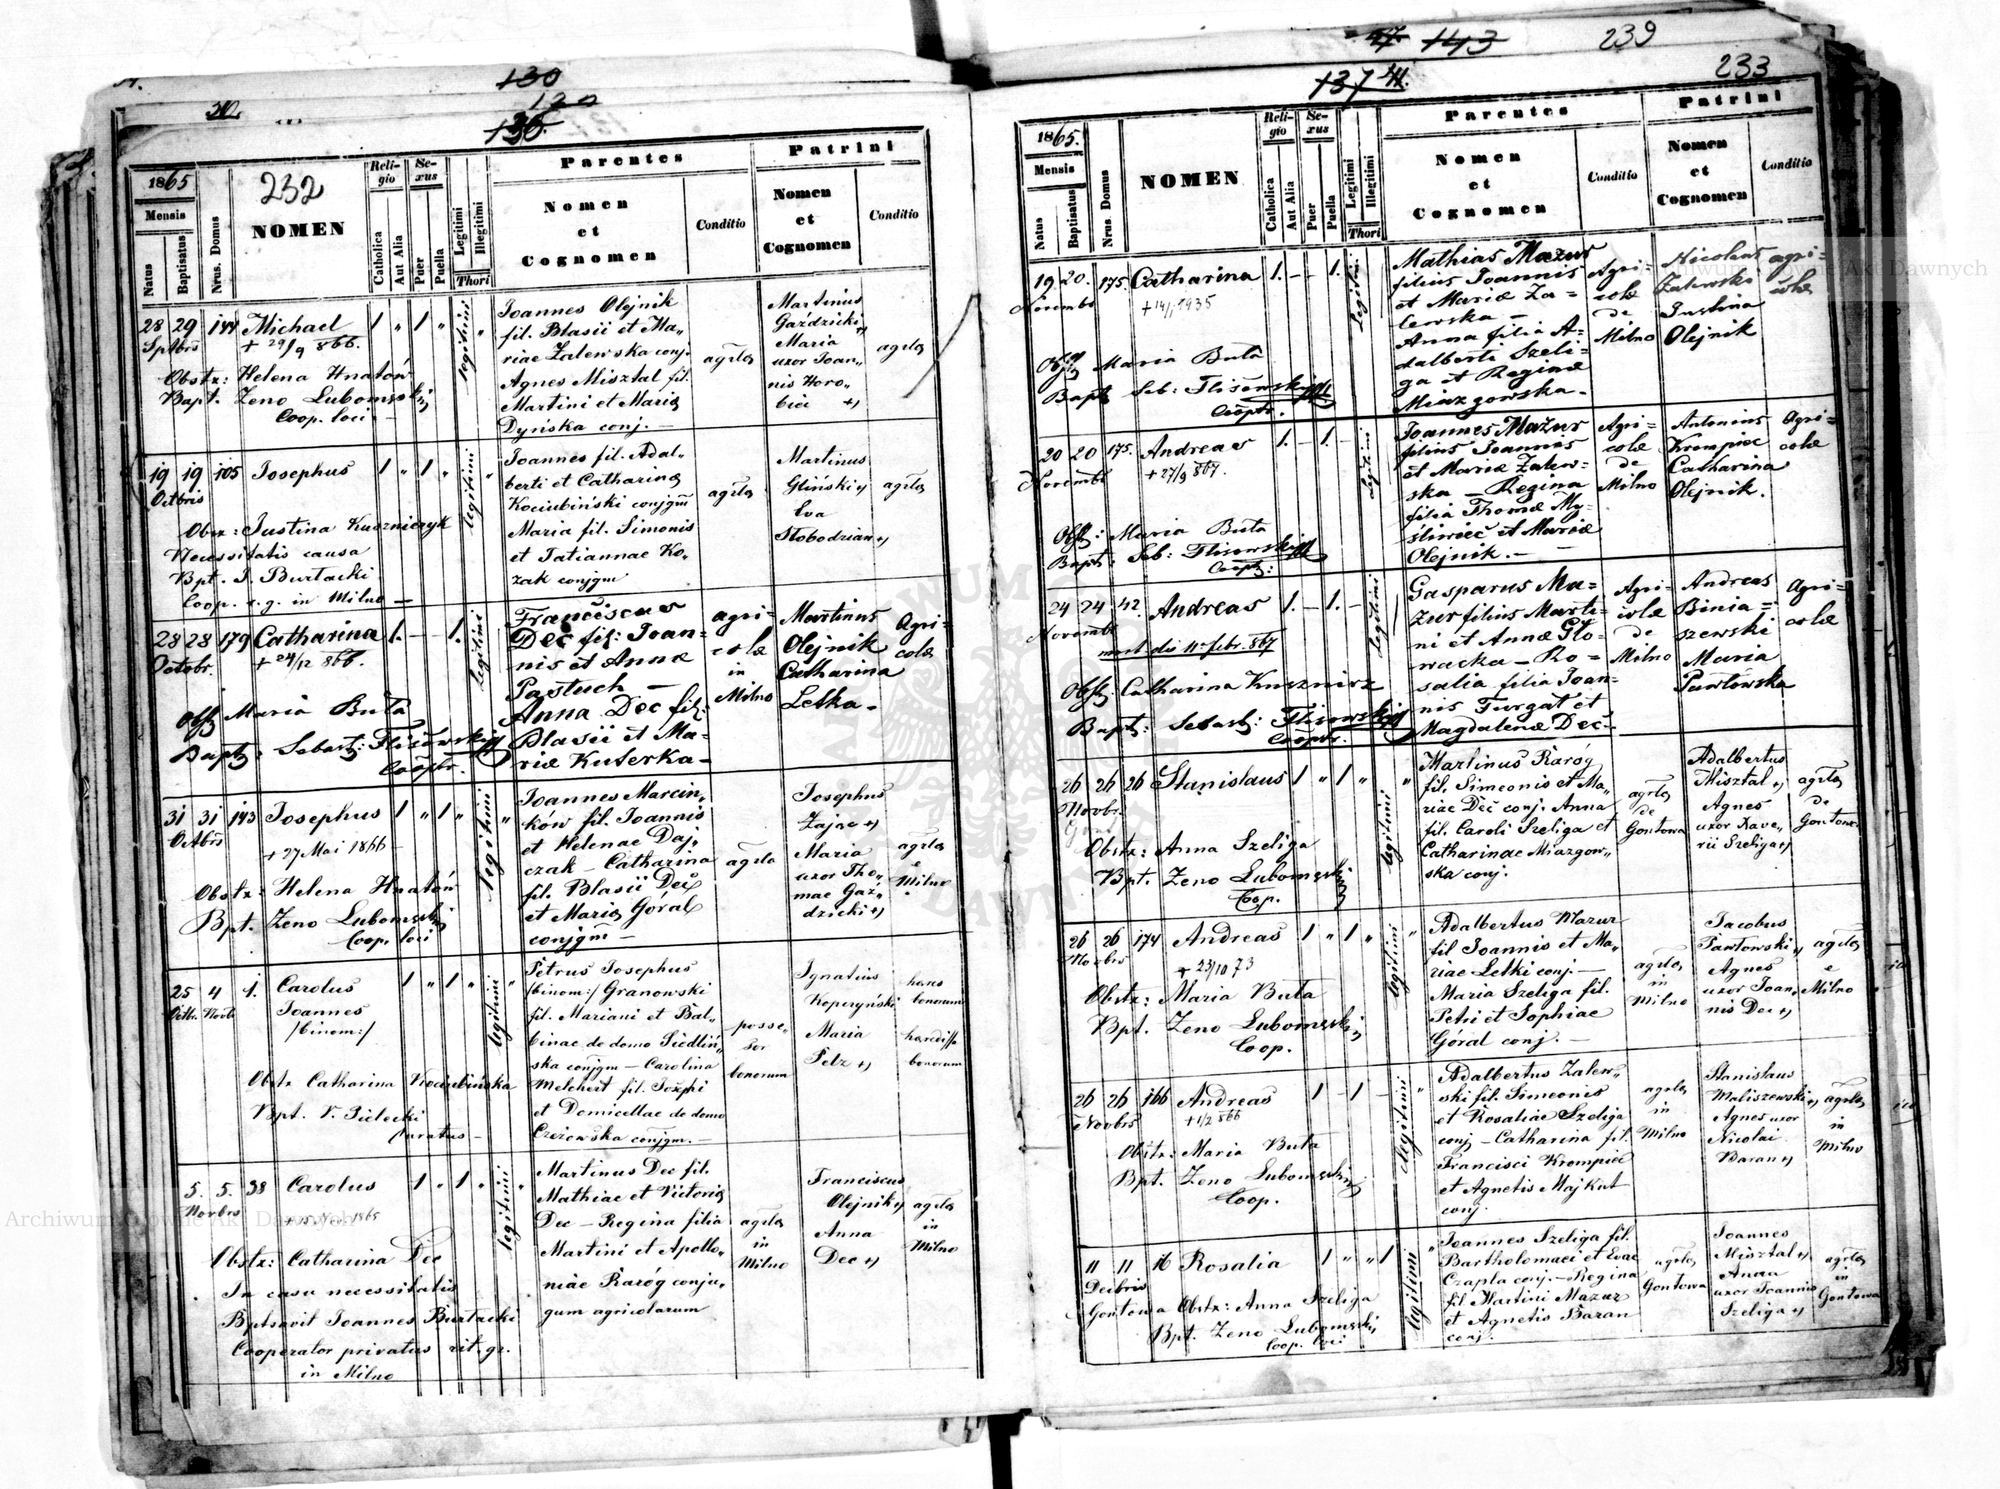 130
120
136.
232
1865
Mensis
Natus
Baptisatus
Nrus. Domus
NOMEN
Religio
Catholica
Aut Alia
Sexus
Puer
Puella
Legitimi
Illegitimi
Thori
Parentes
Nomen
et
Cognomen
Conditio
Patrini
Nomen
et
Cognomen
Conditio
28 29 144 Michael 1 " 1 " legitimi "
Sptbris
+ 29/9 866.
Obstx: Helena Hnatów
Bapt. Zeno Lubomęski
Coop. loci
Ioannes Olejnik
fil. Blasii et Ma„
riae Zalewska conj.
Agnes Misztal fil.
Martini et Maria
Dyńska conj. —
agrlae
Martinus
Gaździcki +)
Maria
uxor Ioan„
nis Horo„
bici +)
agrlae
19 19 105 Iosephus 1 " 1 " legitimi "
Octbris
Obx: Justina Kuczniczyk
Necessitatis causa
Bpt. I. Burtacki
Coop. r. g. in Milno —
Ioannes fil. Adal„
berti et Catharina
Kociubiński conjgm
Maria fil. Simonis
et Tatiannae Ko„
zak conjgm
agrlae
Martinus
Gliński +)
Eva
Słobodzian +)
agrlae
28 28 179 Catharina 1. — 1. legitimi
Octobr.
+ 24/12 866.
Obst Maria Buta
Bapt: Sebast: Flisowski
Cooptr.
Franciscus
Dec fil: Ioan=
nis et Annæ
Pastuch —
Anna Dec fil:
Blasii et Ma=
riæ Kuterka —
agri=
colæ
in
Milno
Martinus
Olejnik
Catharina
Letka —
Agri=
colæ
31 31 143 Iosephus 1 " 1 " legitimi "
Octbris
+ 27 Mai 1866 —
Obstx: Helena Hnatów
Bpt. Zeno Lubomęski
Coop. loci
Ioannes Marcin„
ków fil. Ioannis
et Helenae Daj„
czak — Catharina
fil. Blasii Dec
et Maria Góral
conjgm —
agrla
Iosephus
Zając +)
Maria
uxor Tho„
mae Gaź„
dzicki +)
agrlae
e
Milno
25 4 1. Carolus 1 " 1 " legitimi "
Octbr. Novb
Ioannes
/binom:/
Obstx Catharina Kociubińska
Bpt. V. Sielecki
curatus —
Petrus Iosephus
/binom:/ Granowski
fil. Mariani et Bal„
binae de domo Siedliń„
ska conjgm — Carolina
Melchert fil. Iosephi
et Domicellae de domo
Czeżewska conjgm. —
posse„
sor
bonorum
Ignatius
Kopczyński
Maria
Pelz +)
haeres
bonorum
haeredissa
bonorum
5. 5. 38 Carolus 1 " 1 " legitimi "
Novbris
Obstx: Catharina Dec
In casu necessitatis
Bptsavit Ioannes Burtacki
Cooperator privatus rit. gr.
in Milno
Martinus Dec fil.
Mathiae et Victoria
Dec — Regina filia
Martini et Apollo„
niae Raróg conju„
gum agricolarum
agrlae
in
Milno
Franciscus
Olejnik +)
Anna
Dec +)
agrlae
in
Milno
143
239
137
233
1865.
Mensis
Natus
Baptisatus
Nrus. Domus
NOMEN
Religio
Catholica
Aut Alia
Sexus
Puer
Puella
Legitimi
Illegitimi
Thori
Parentes
Nomen
et
Cognomen
Conditio
Patrini
Nomen
et
Cognomen
Conditio
19 20. 175. Catharina 1. — — 1. legitimi
Novembr
+ 14/1 1935
Obst Maria Buta
Bapt Seb: Flisowski
Cooptr.
Mathias Mazur
filius Ioannis
et Mariæ Za=
lewska —
Anna filia A=
dalberti Szeli=
ga et Reginæ
Miazgowska —
Agri=
colæ
de
Milno
Nicolaus
Zalewski
Justina
Olejnik
agri=
colæ
20 20 175. Andreas 1. — 1. — legitimi
Novembr
+ 27/9 867.
Obst: Maria Buta
Bapt: Seb: Flisowski
Cooptr:
Ioannes Mazur
filius Ioannis
et Mariæ Zalew=
ska — Regina
filia Thomæ My=
śliwiec et Mariæ
Olejnik. —
Agri=
colæ
de
Milno
Antonius
Krompiec
Catharina
Olejnik.
Agri=
colæ
24 24 42. Andreas 1. — 1. — legitimi
Novembr
mort die 11 febr. 867
Obst: Catharina Kusznirz
Bapt: Sebast: Flisowski
Cooptr.
Gasparus Ma=
zur filius Marti=
ni et Annæ Gło=
wacka — Ro=
salia filia Ioan=
nis Turgat et
Magdalenæ Dec —
Agri=
colæ
de
Milno
Andreas
Binia=
szewski
Maria
Pawłowska
Agri=
colæ
26 26 26 Stanislaus 1 " 1 " legitimi "
Novbr
Obstx: Anna Szeliga
Bpt. Zeno Lubomęski
Coop.
Martinus Raróg
fil. Simeonis et Ma„
riae Dec conj. Anna
fil. Caroli Szeliga et
Catharinae Miazgow„
ska conj.
agrlae
de
Gontowa
Adalbertus
Misztal +)
Agnes
uxor Xave„
rii Szeliga +)
agrlae
de
Gontowa
26 26 174 Andreas 1 " 1 " legitimi "
Novbris
+ 23/10 73
Obstx: Maria Buta
Bpt. Zeno Lubomęski
Coop.
Adalbertus Mazur
fil Ioannis et Ma„
riae Letki conj. —
Maria Szeliga fil.
Petri et Sophiae
Góral conj. —
agrlae
in
Milno
Iacobus
Pawłowski +)
Agnes
uxor Ioan„
nis Dec +)
agrlae
e
Milno
26 26 166 Andreas 1 - 1 — legitimi "
Novbris
+ 1/2 866
Obstx: Maria Buta
Bpt. Zeno Lubomęski
Coop.
Adalbertus Zalew„
ski fil. Simeonis
et Rosaliae Szeliga
conj — Catharina fil.
Francisci Krompiec
et Agnetis Majkut
conj.
agrlae
in
Milno
Stanislaus
Maliszewski +)
Agnes uxor
Nicolai
Baran +)
agrlae
in
Milno
11 11 16 Rosalia 1 " " 1 legitimi "
Decbris
Gontowa Obstx: Anna Szeliga
Bpt. Zeno Lubomęski
Coop. loci
Ioannes Szeliga fil.
Bartholomaei et Evae
Czapla conj. — Regina
fil Martini Mazur
et Agnetis Baran
conj.
agrlae
Gontowa
Ioannes
Misztal +)
Anna
uxor Ioannis
Szeliga +)
agrlae
in
Gontowa
Archiwum Główne Akt Dawnych
Archiwum Główne Akt Dawnych